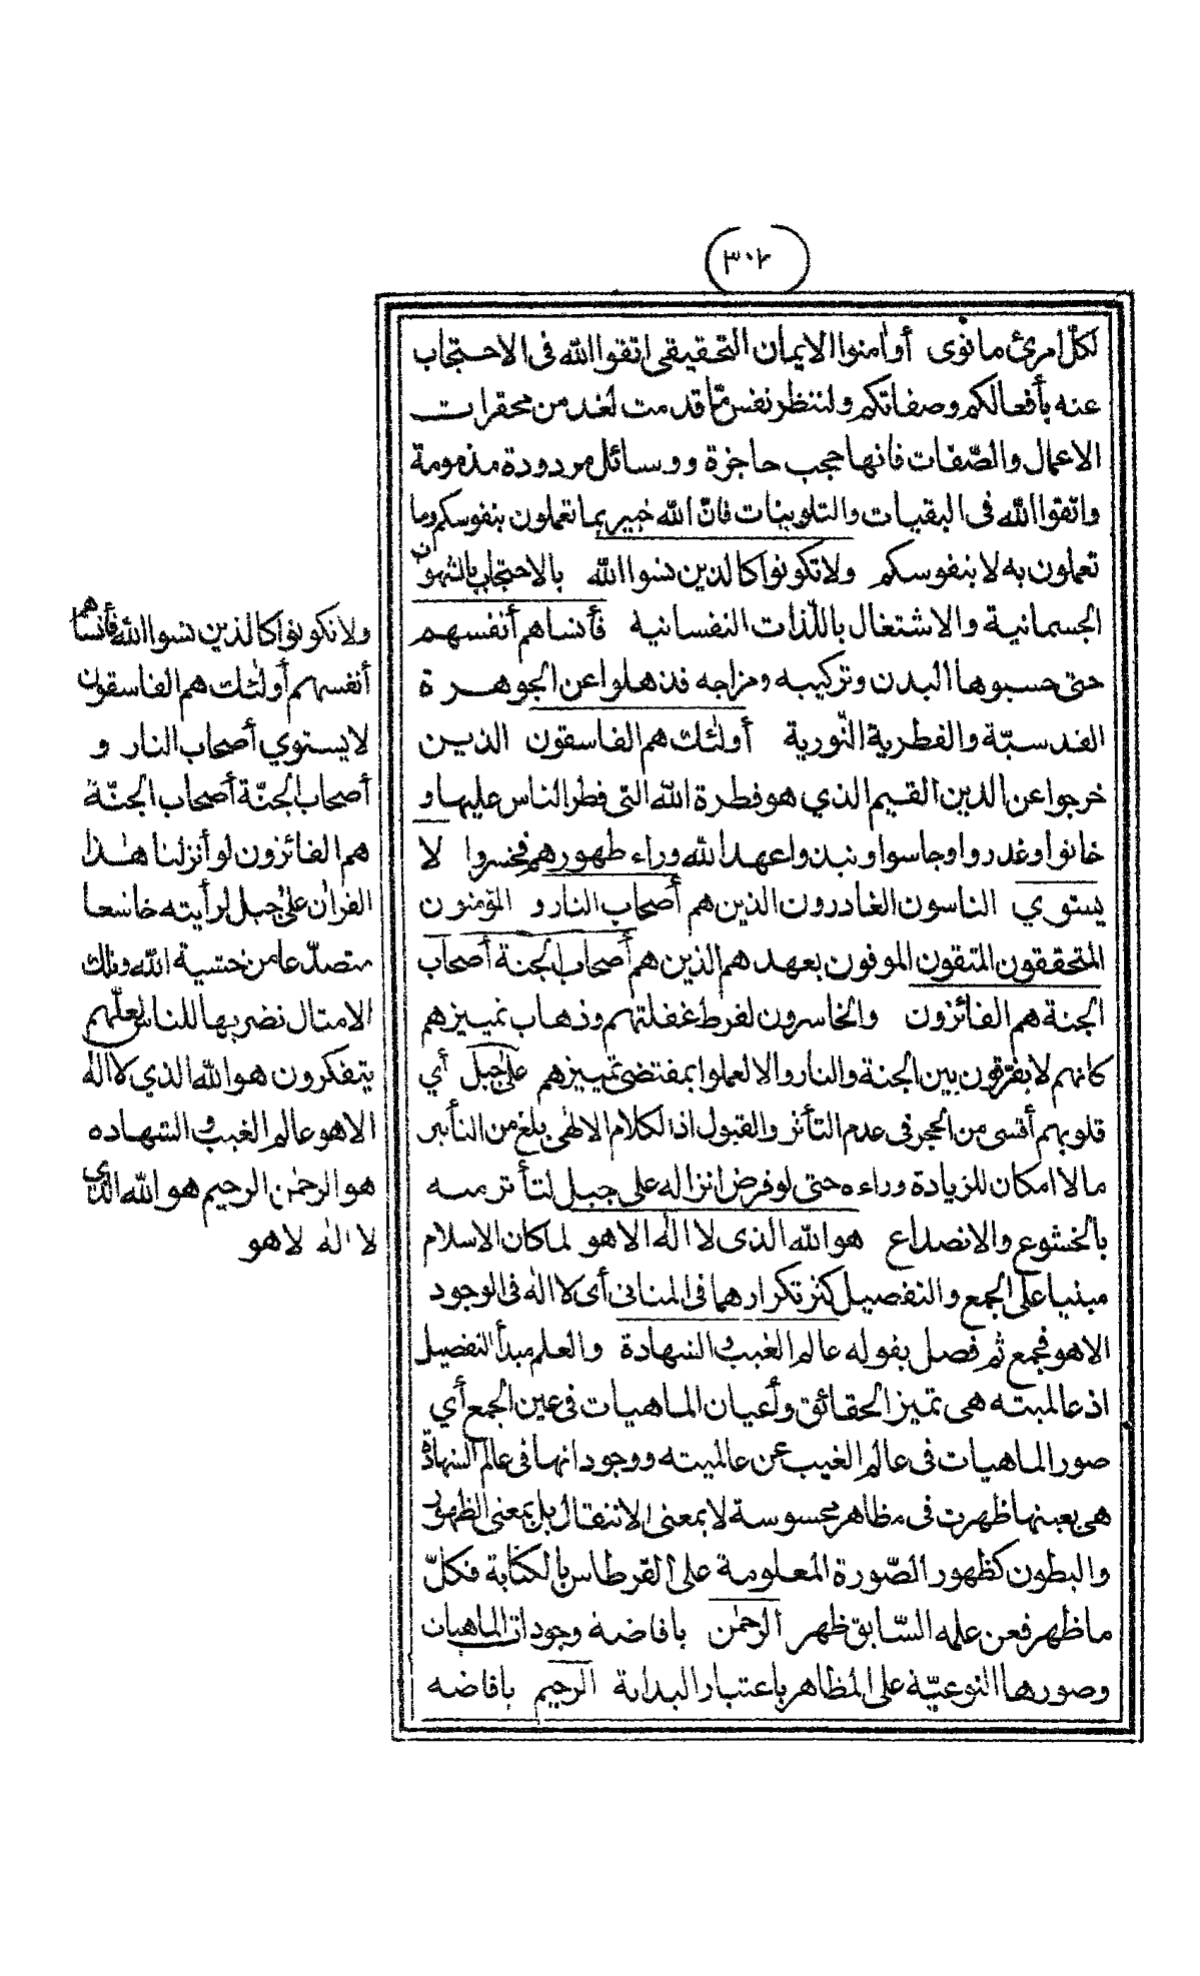 (٣٠٢)
لكلّ امرئ ما نوى أو آمنوا الايمان التحقيقي اتقوا الله فى الاحتجاب
عنه بأفعالكم وصفاتكم ولتنظر نفس مّا قدمت لغد من محقرات
الاعمال والصّفات فانها حجب حاجزة ووسائل مردودة مذمومة
واتقوا الله فى البقيات والتلوينات فانّ الله خبير بما تعملون بنفوسكم وما
تعملون به لا بنفوسكم ولا تكونوا كالذين نسوا الله بالاحتجاب بالشهوات
الجسمانية والاشتغال باللّذات النفسانية فأنساهم أنفسهم
حتى حسبوها البدن وتركيبه ومزاجه فذهلوا عن الجوهرة
القدسيّة والفطرية النّورية أولئك هم الفاسقون الذين
خرجوا عن الدين القيم الذي هو فطرة الله التى فطر الناس عليها و
خانوا وغدروا وجاسوا ونبذوا عهد الله وراء ظهورهم فخسروا لا
يستوي الناسون الغادرون الذين هم أصحاب النار و المؤمنون
المتحققون المتقون الموفون بعهدهم الذين هم أصحاب الجنة أصحاب
الجنة هم الفائزون والخاسرون لفرط غفلتهم وذهاب تمييزهم
كانهم لا يفرقون بين الجنة والنار والا لعملوا بمقتضى تمييزهم على جبل أي
قلوبهم أقسى من الحجر فى عدم التأثر والقبول اذ الكلام الالهى بلغ من التأثير
ما لا امكان للزيادة وراءه حتى لو فرض انزاله على جبل لتأثر منه
بالخشوع والانصداع هو الله الذى لا اله الا هو لما كان الاسلام
مبنيا على الجمع والتفصيل كثر تكرارهما فى المثانى أى لا اله فى الوجود
الا هو فجمع ثم فصل بقوله عالم الغيب والشهادة والعلم مبدأ التفصيل
اذ عالميته هى تميز الحقائق وأعيان الماهيات فى عين الجمع أي
صور الماهيات فى عالم الغيب عن عالميته ووجوداتها فى عالم الشهادة
هى بعينها ظهرت فى مظاهر محسوسة لا بمعنى الانتقال بل بمعنى الظهور
والبطون كظهور الصّورة المعلومة على القرطاس بالكتابة فكلّ
ما ظهر فعن علمه السّابق ظهر الرحمن بافاضة وجودات الماهيات
وصورها النوعيّة على المظاهر باعتبار البداية الرحيم بافاضه
ولا تكونوا كالذين نسوا الله فأنساهم
أنفسهم أولئك هم الفاسقون
لا يستوي أصحاب النار و
أصحاب الجنّة أصحاب الجنّة
هم الفائزون لو أنزلنا هذا
القرآن على جبل لرأيته خاشعا
متصدّعا من خشية الله وتلك
الامثال نضربها للناس لعلّهم
يتفكرون هو الله الذي لا اله
الا هو عالم الغيب والشهاده
هو الرحمن الرحيم هو الله الذي
لا اله لا هو